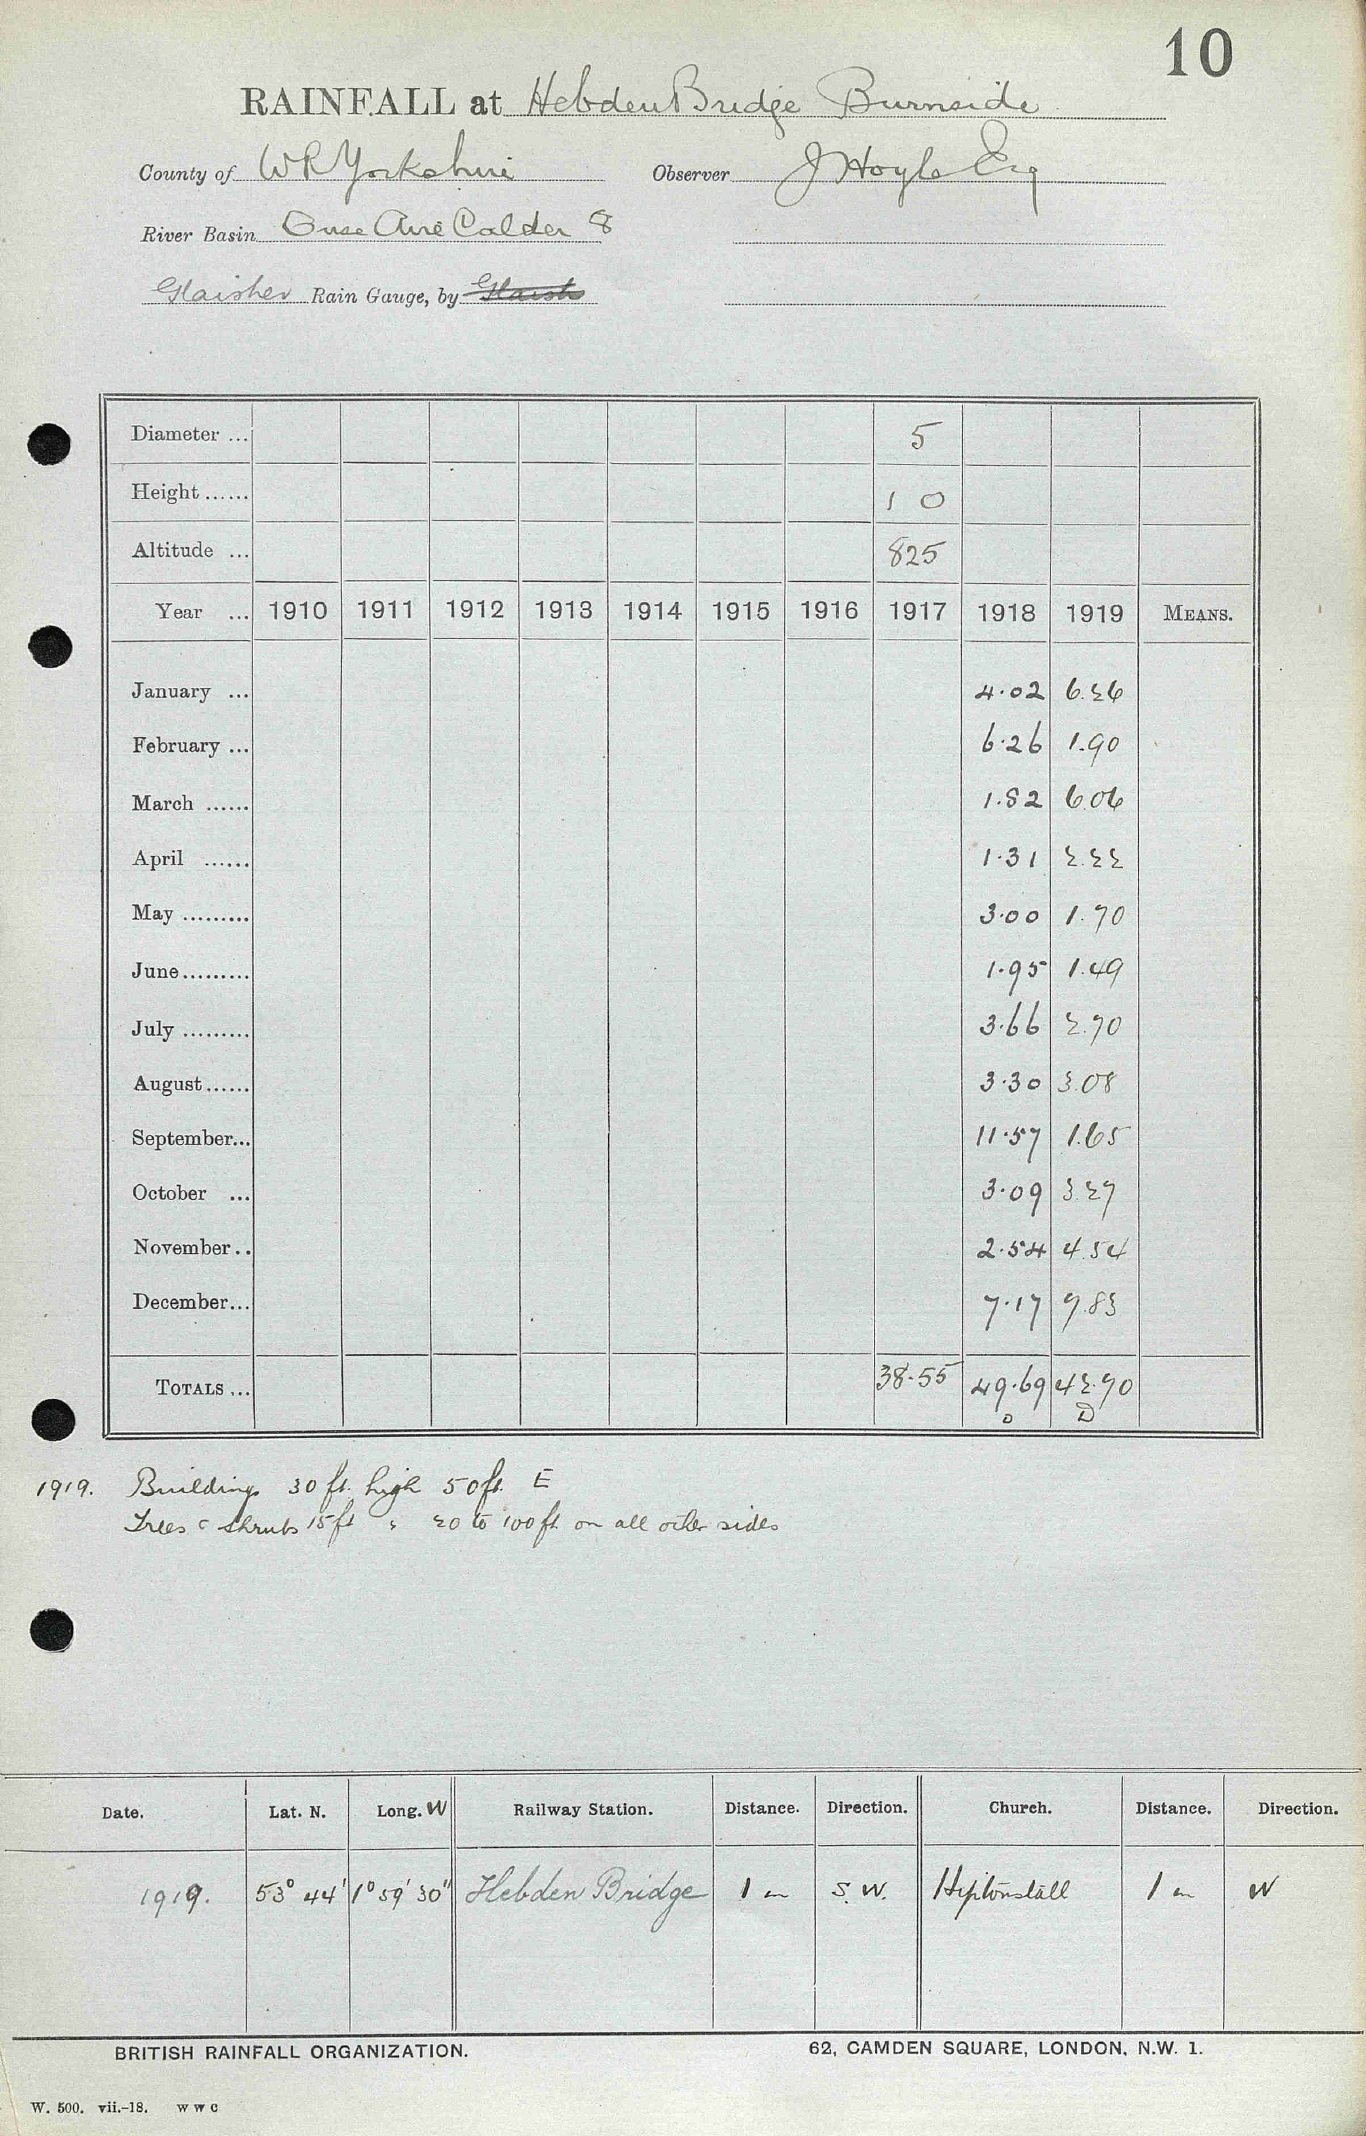 10
RAINFALL at Hebden Bridge Burnside
County of W R Yorkshire Observer J Hoyle Esq
River Basin Ouse Aire Calder 8
Glaisher Rain Gauge, by Glaish
Diameter ... 5
Height ...... 1 0
Altitude ... 825
Year ... 1910 1911 1912 1913 1914 1915 1916 1917 1918 1919 MEANS.
January ... 4.02 6.26
February ... 6.26 1.90
March ...... 1.82 6.06
April ...... 1.31 2.22
May ......... 3.00 1.70
June ......... 1.95 1.49
July ......... 3.66 2.70
August ...... 3.30 3.08
September... 11.57 1.65
October ... 3.09 3.27
November .. 2.54 4.54
December... 7.17 7.83
TOTALS ... 38.55 49.69 42.70
D D
1919. Buildings 30 ft. high 50 ft. E
Trees & shrubs 15 ft " 20 to 100 ft on all other sides
Date. Lat. N. Long. W Railway Station. Distance. Direction. Church. Distance. Direction.
1919. 53° 44' 1° 59' 30" Hebden Bridge 1 m S.W. Heptonstall 1 m W
BRITISH RAINFALL ORGANIZATION. 62, CAMDEN SQUARE, LONDON, N.W. 1.
W. 500. vii.-18. W W C